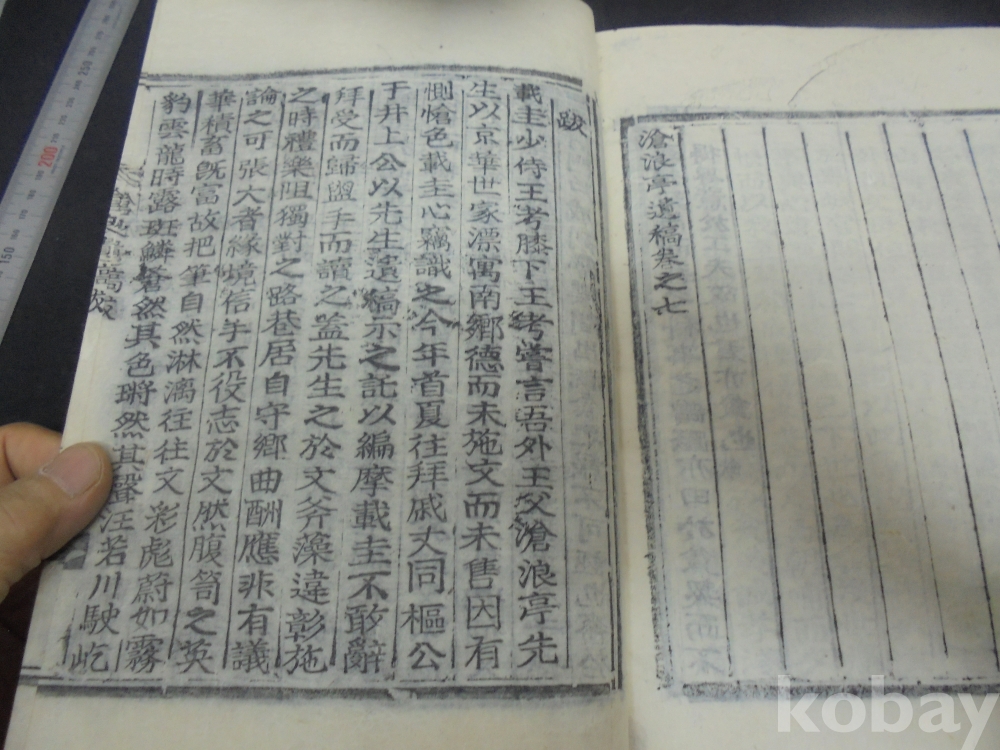 滄浪亭遺稿卷之七
跋
載圭少侍王考膝下王考嘗言吾外王父滄浪亭先
生以京華世家漂寓南鄉德而未施文而未售因有
惻愴色載圭心竊識之今年首夏往拜戚丈同樞公
于井上公以先生遺稿示之託以編摩載圭不敢辭
拜受而歸盥手而讀之盖先生之於文斧藻違彰施
之時禮樂阻獨對之路巷居自守鄉曲酬應非有議
論之可張大者緣境信手不役志於文然腹笥之英
華積畜旣富故把筆自然淋漓往往文彩彪蔚如霧
豹雲龍時露斑鱗蒼然其色瑯然其聲汪若川駛屹
200
150
kobay